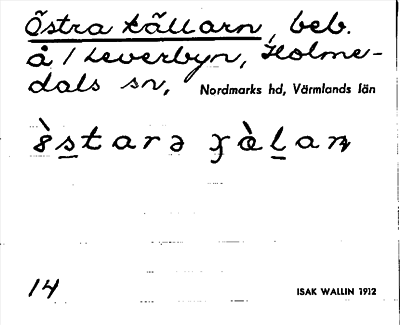 Östra källarn, beb.
å / Leverbyn, Holme-
dals sn, Nordmarks hd, Värmlands län
14
ISAK WALLIN 1912